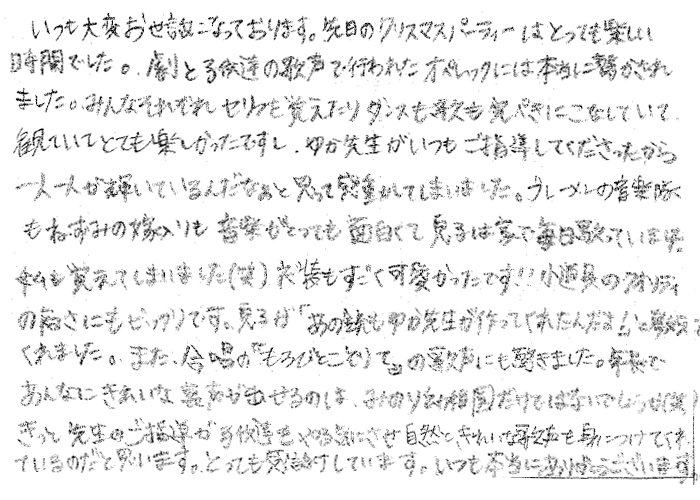 いつも大変お世話になっております。先日のクリスマスパーティーはとっても楽しい
時間でした。劇と子供達の歌声で行われたオペレッタには本当に驚かされ
ました。みんなそれぞれセリフを覚えたりダンスも歌も完ぺきにこなしていて、
観ていてとても楽しかったですし、ゆか先生がいつもご指導してくださったから
一人一人が輝いているんだなぁと思って感動してしまいました。ブレーメンの音楽隊
もねずみの嫁入りも音楽がとっても面白くて息子は家で毎日歌っています。
私も覚えてしまいました(笑)衣装もすごく可愛かったです!!小道具のクオリティ
の高さにもビックリです。息子が「あの鏡もゆか先生が作ってくれたんだよ!」と
くれました。また、合唱の『もろびとこぞりて』の歌声にも驚きました。年長で
あんなにきれいな裏声が出せるのは、みのり幼稚園だけではないでしょうか(笑)
きっと先生のご指導が子供達をやる気にさせ自然ときれいな歌声も身につけてくれ
ているのだと思います。とっても感謝しています。いつも本当にありがとうございます。